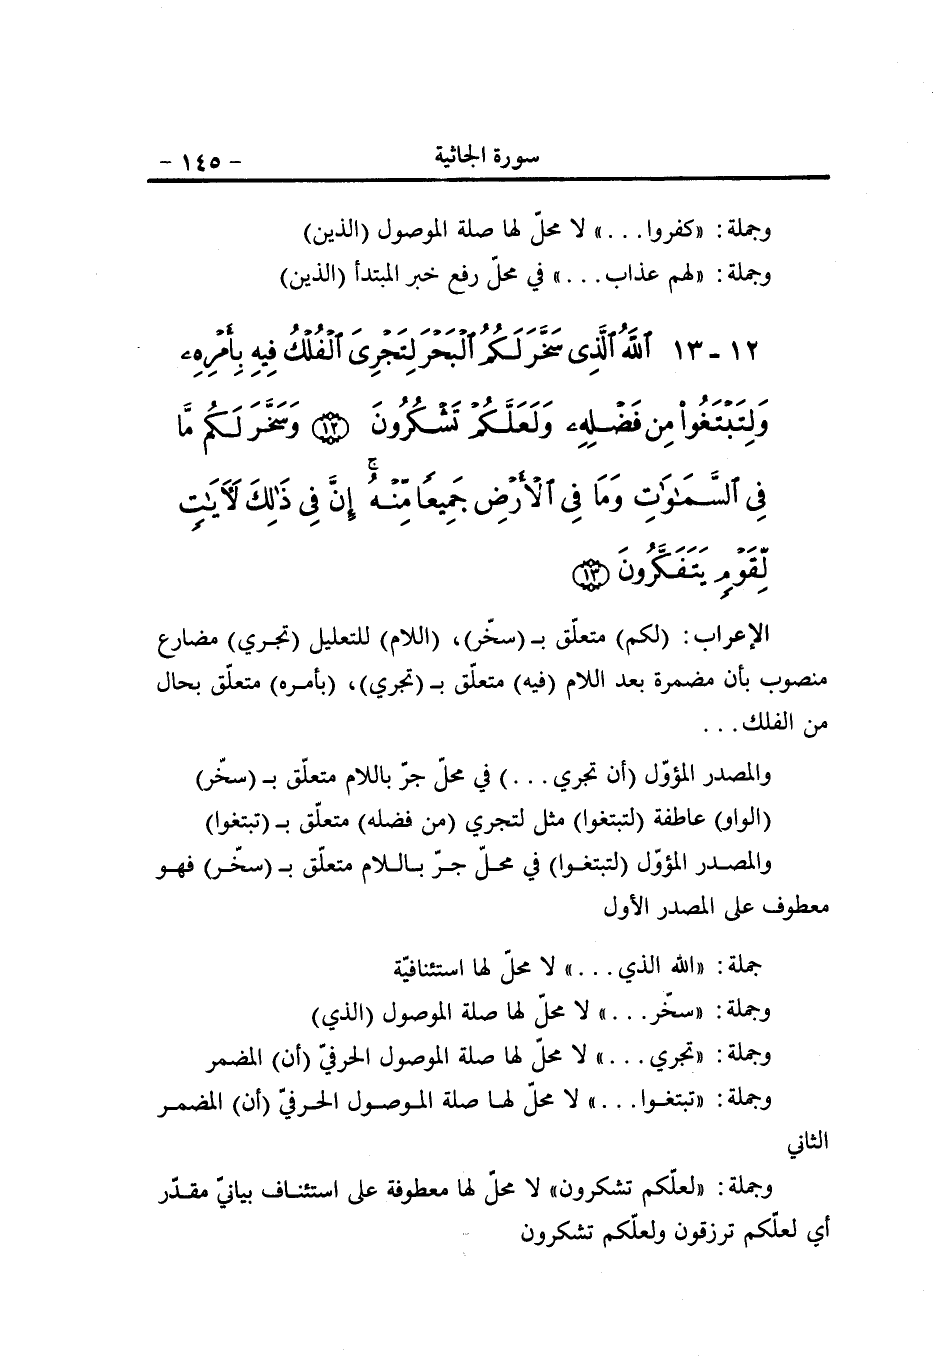 سورة الجاثية - ١٤٥ -
وجملة: «كفروا...» لا محلّ لها صلة الموصول (الذين)
وجملة: «لهم عذاب...» في محلّ رفع خبر المبتدأ (الذين)
١٢ - ١٣ ٱللَّهُ ٱلَّذِى سَخَّرَ لَكُمُ ٱلْبَحْرَ لِتَجْرِىَ ٱلْفُلْكُ فِيهِ بِأَمْرِهِۦ
وَلِتَبْتَغُوا۟ مِن فَضْلِهِۦ وَلَعَلَّكُمْ تَشْكُرُونَ ﴿١٢﴾ وَسَخَّرَ لَكُم مَّا
فِى ٱلسَّمَـٰوَٰتِ وَمَا فِى ٱلْأَرْضِ جَمِيعًا مِّنْهُ ۚ إِنَّ فِى ذَٰلِكَ لَـَٔايَـٰتٍ
لِّقَوْمٍ يَتَفَكَّرُونَ ﴿١٣﴾
الإعراب: (لكم) متعلّق بـ (سخّر)، (اللام) للتعليل (تجري) مضارع
منصوب بأن مضمرة بعد اللام (فيه) متعلّق بـ (تجري)، (بأمره) متعلّق بحال
من الفلك...
والمصدر المؤوّل (أن تجري...) في محلّ جرّ باللام متعلّق بـ (سخّر)
(الواو) عاطفة (لتبتغوا) مثل لتجري (من فضله) متعلّق بـ (تبتغوا)
والمصدر المؤوّل (لتبتغوا) في محلّ جرّ باللام متعلّق بـ (سخّر) فهو
معطوف على المصدر الأول
جملة: «الله الذي...» لا محلّ لها استئنافيّة
وجملة: «سخّر...» لا محلّ لها صلة الموصول (الذي)
وجملة: «تجري...» لا محلّ لها صلة الموصول الحرفيّ (أن) المضمر
وجملة: «تبتغوا...» لا محلّ لها صلة الموصول الحرفيّ (أن) المضمر
الثاني
وجملة: «لعلّكم تشكرون» لا محلّ لها معطوفة على استئناف بيانيّ مقدّر
أي لعلّكم ترزقون ولعلّكم تشكرون